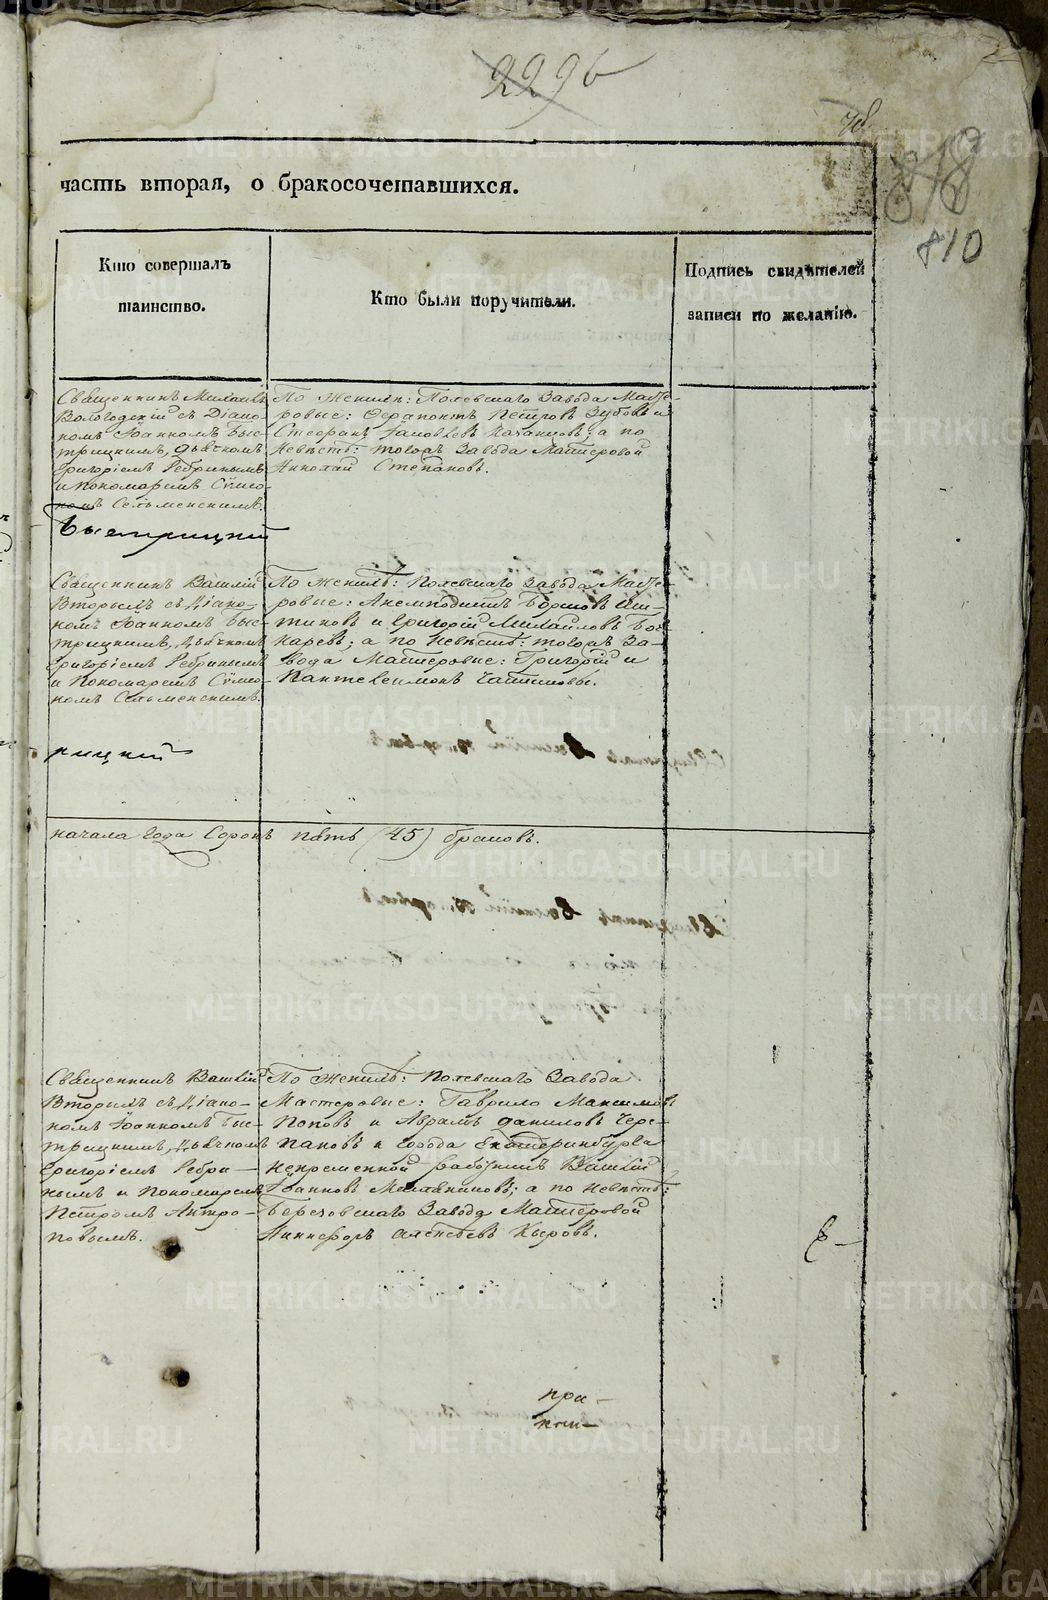 2296
818
810
часть вторая, о бракосочетавшихся.
Кто совершалъ
таинство.
Кто были поручители.
Подпись свидѣтелей
записи по желанію.
Священникъ Михаилъ
Вологодскій съ Діако-
номъ Іоанномъ Быс-
трицкимъ, Дьячкомъ
Григоріемъ Ребринымъ
и Пономаремъ Сѵмео-
номъ Сельменскимъ.
Быстрицкій
По женихѣ: Полевскаго Завода Масте-
ровые: Ферапонтъ Петровъ Зубовъ и
Стефанъ Іаковлевъ Качановъ; а по
Невѣстѣ: тогожъ Завода Мастеровой
Николай Степановъ.
Священникъ Василій
Вторымъ съ Діако-
номъ Іоанномъ Быс-
трицкимъ, Дьячкомъ
Григоріемъ Ребринымъ
и Пономаремъ Сѵмео-
номъ Сельменскимъ.
рицкій
По женихѣ: Полевскаго Завода Масте-
ровые:
и Григорій Михайловъ
а по Невѣстѣ: тогожъ За-
вода Мастеровые: Григорій и
Пантелеимонъ
начала года Сорокъ пять (45) браковъ.
Священникъ Василій
Вторымъ съ Діако-
номъ Іоанномъ Быс-
трицкимъ, Дьячкомъ
Григоріемъ Ребри-
нымъ и Пономаремъ
Петромъ Антро-
повымъ.
По женихѣ: Полевскаго Завода
Мастеровые: Гаврило Максимовъ
Поповъ и Аврамъ Даниловъ Чере-
пановъ и города Екатеринбурга
непременной работникъ Василій
Іоанновъ а по Невѣстѣ:
Березовскаго Завода Мастеровой
Никифоръ Алексѣевъ
при-
METRIKI.GASO-URAL.RU